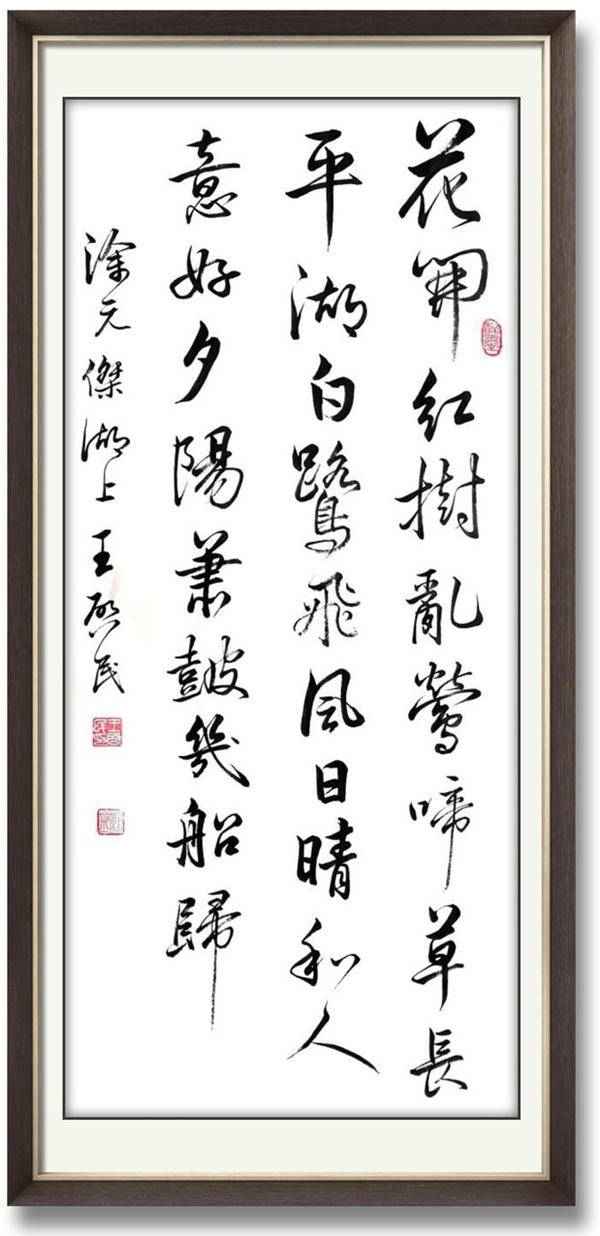 花開紅樹亂鶯啼草長
平湖白鷺飛風日晴和人
意好夕陽萧鼓幾船歸
涂元傑湖上王啟民